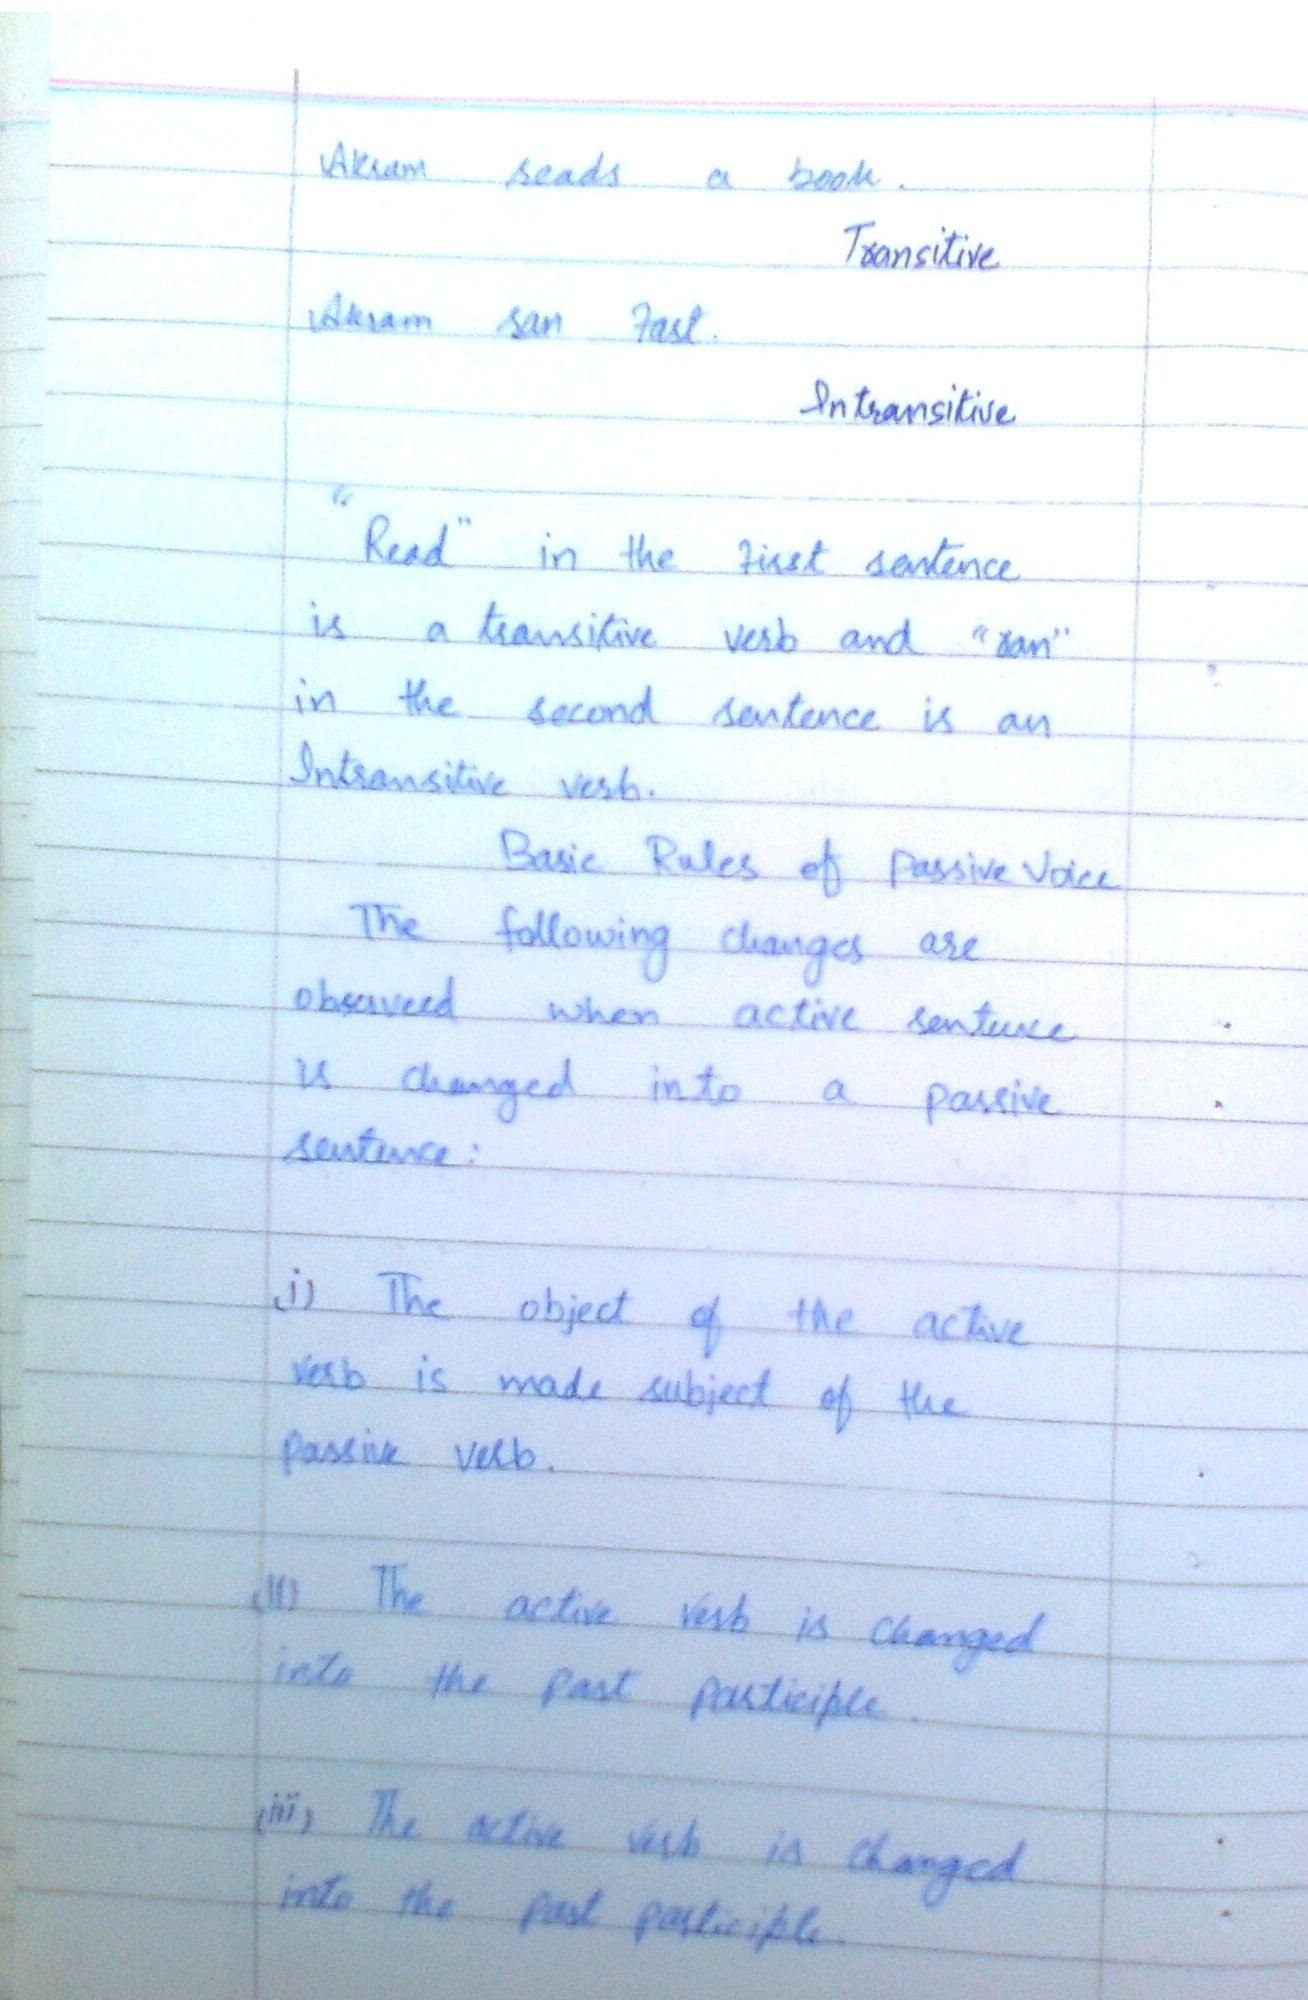 Akram reads a book.
Transitive
Akram ran Fast.
Intransitive
"Read" in the First sentence
is a transitive verb and "ran"
in the second sentence is an
Intransitive verb.
Basic Rules of Passive Voice
The following changes are
observeed when active sentence
is changed into a passive
sentence:
(i) The object of the active
verb is made subject of the
passive verb.
(II) The active verb is changed
into the past participle.
(iii) The active verb is changed
into the past participle.